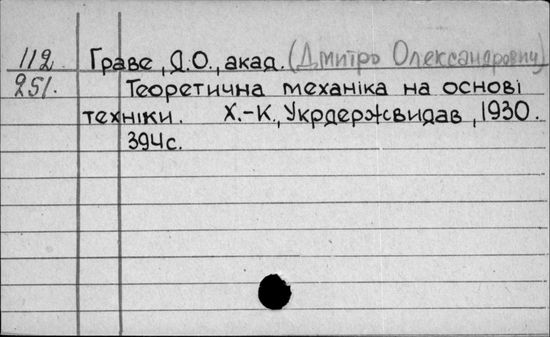 112 Граве, Д.О., акад. (Дмитро Олександрович)
251. Теоретична механіка на основі
техніки. Х.-К., Укрдержвидав, 1930.
394с.